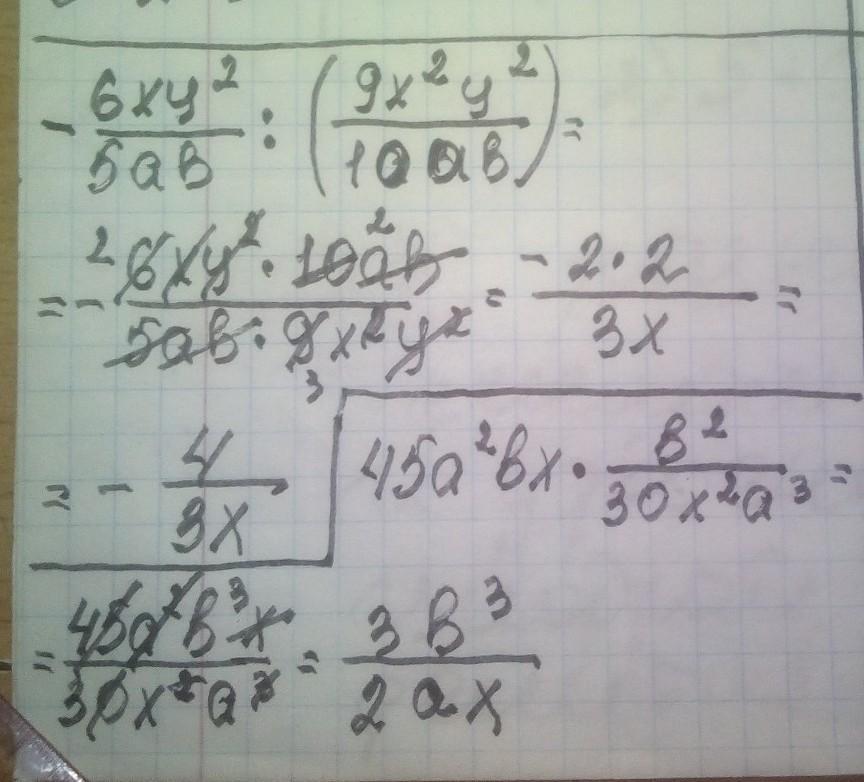 - 6xy²/5ab : (9x²y²/10ab) =
= - 6xy² · 10ab/5ab · 9x²y² = - 2 · 2/3x =
= - 4/3x
45a²bx · b²/30x²a³ =
= 45a²b³x/30x²a³ = 3b³/2ax